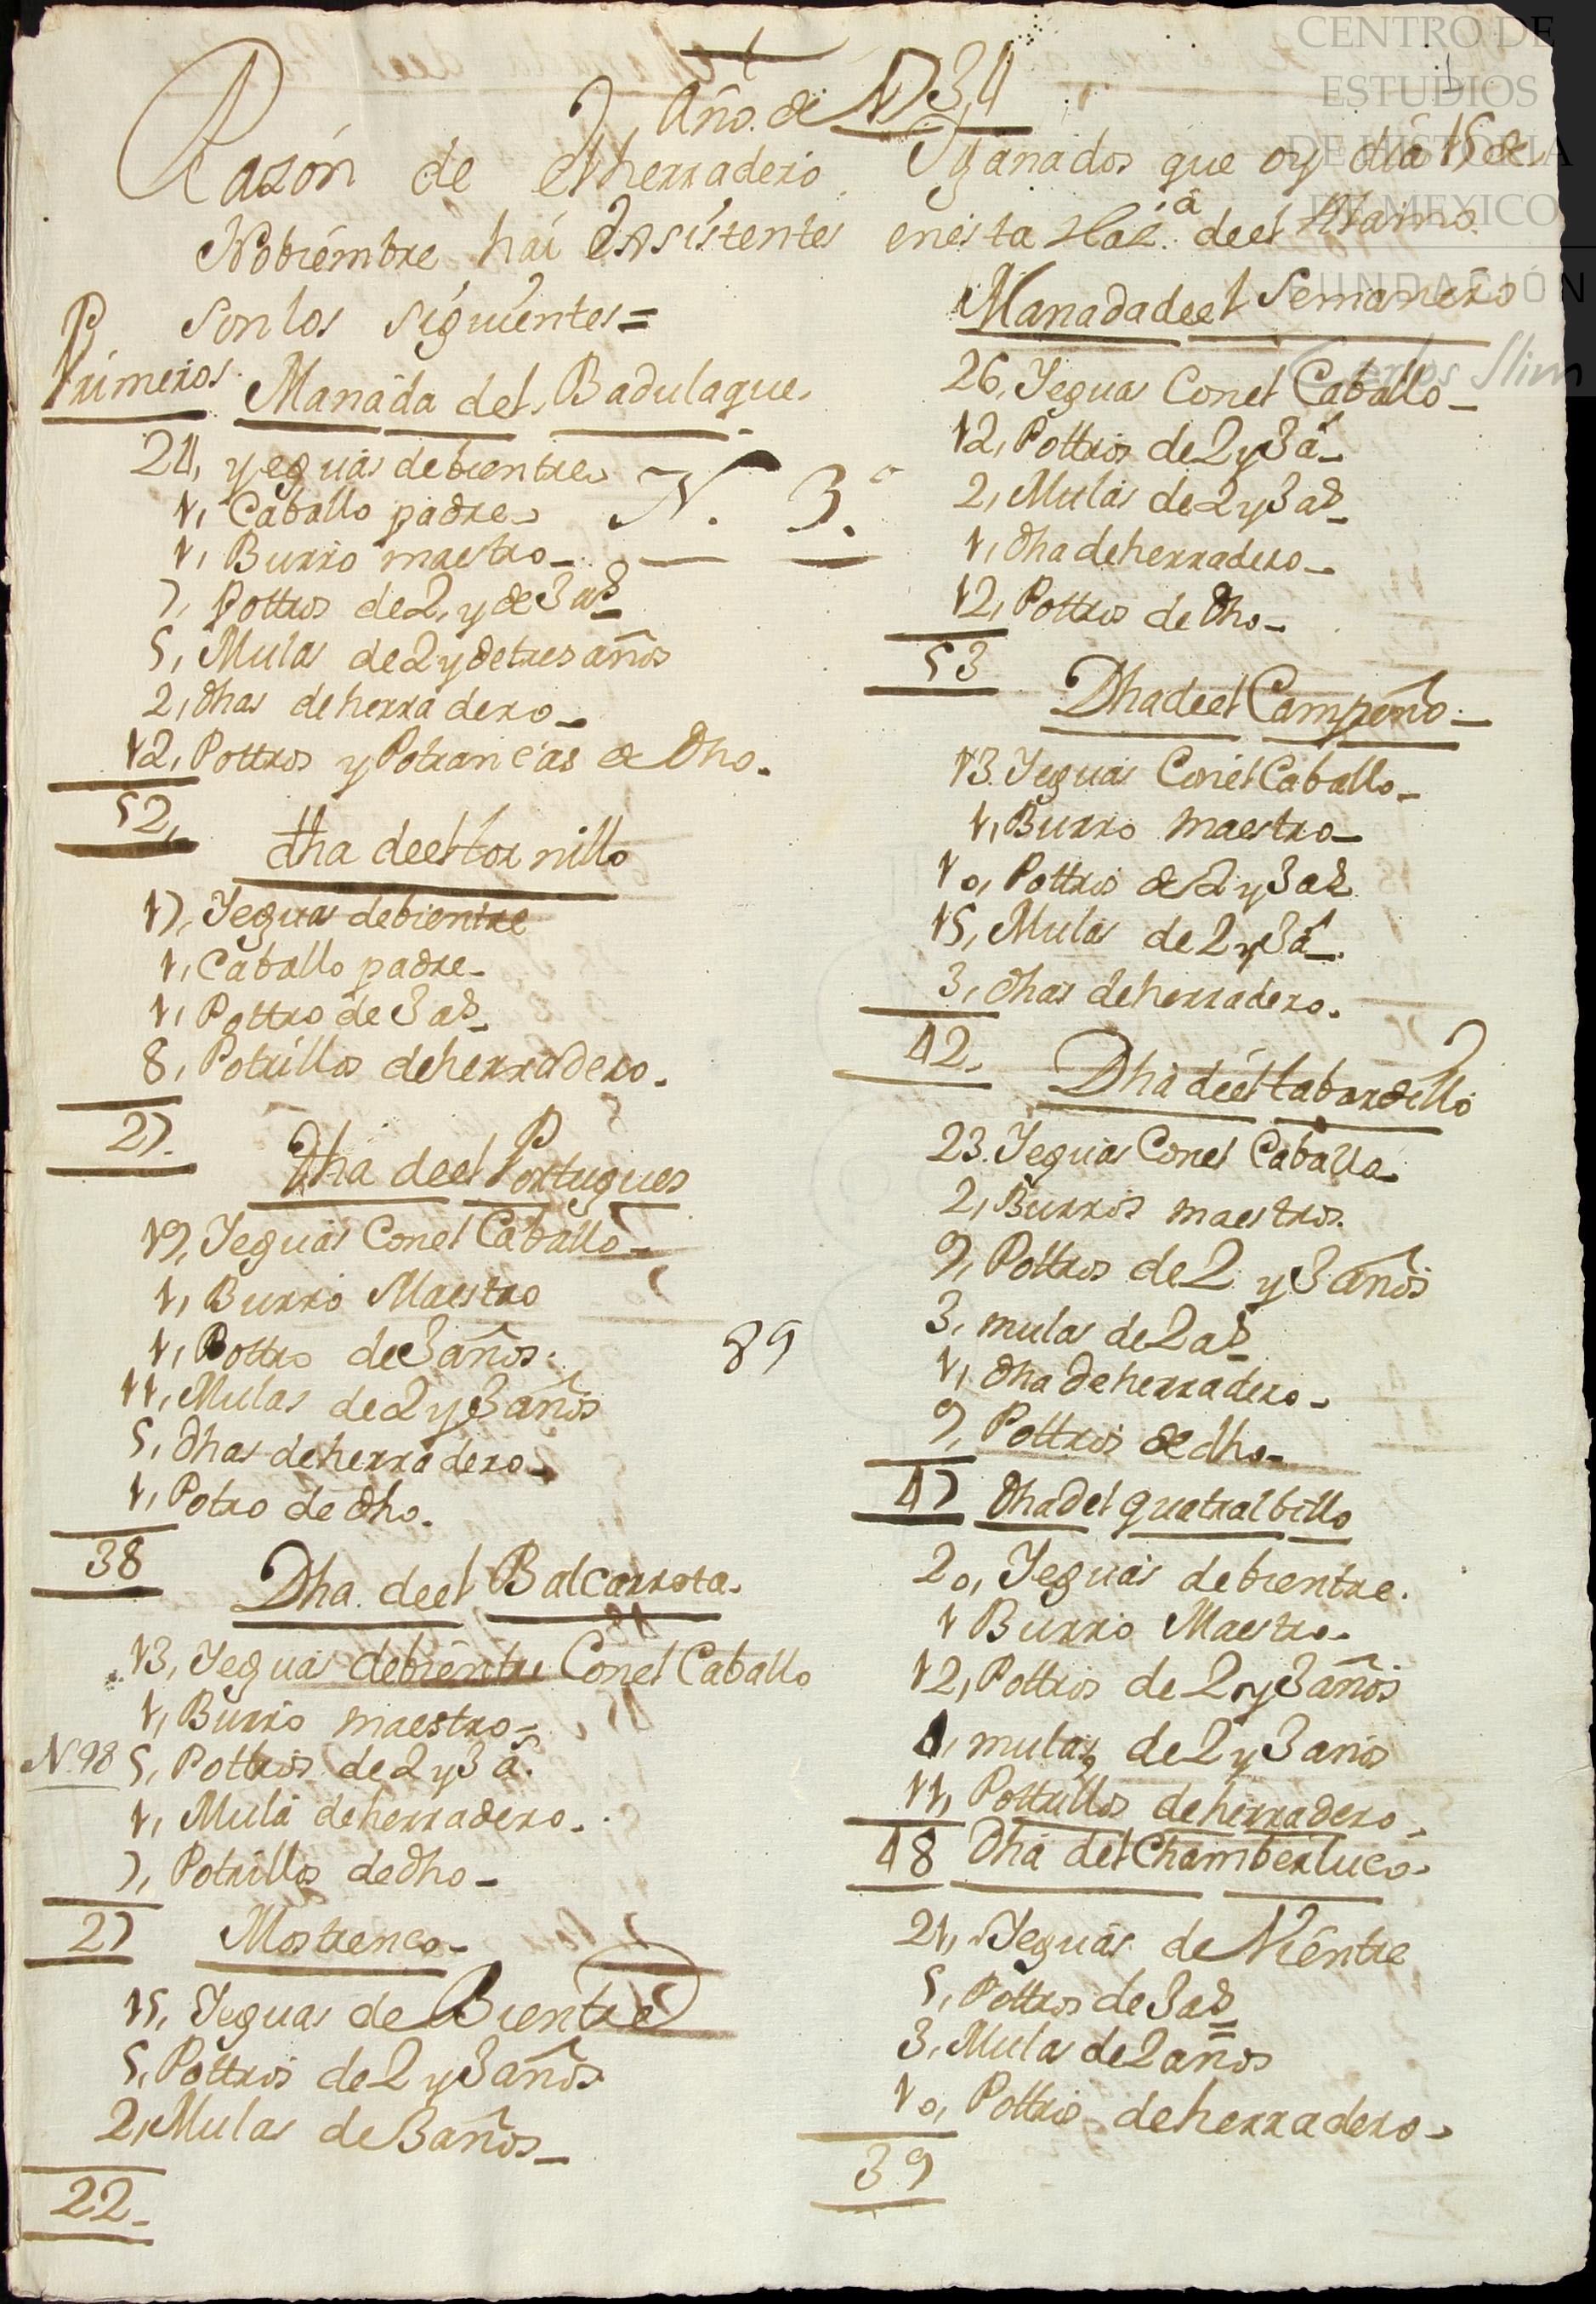 Año. de 1734
Razón de el herradero, y ganados que oy dia 15 de
Nobiembre hai Existentes enesta Haz.ª deel Alamo
Son los siguientes =
Primeros. Manada del Badulaque,
24, yeguas debientre
1, Caballo padre
1, Burro maestro
7, Pottros de 2, y de 3 as
5, Mulas de 2 y detres años
2, dhas deherradero
12, Pottros y Potrancas de Dho.
52,
N. 3.º
dha deel tornillo
17, Yeguas debientre
1, Caballo padre
1, Pottro de 3 as
8, Potrillos deherradero.
27.
Dha deel Portugues
19, Yeguas Conel Caballo
1, Burro Maestro
1, Pottro de 3 años.
11, Mulas de 2 y 3 años
5, dhas deherradero
1, Potro de dho.
38
89
Dha. deel Balcarrota.
13, Yeguas debientre Conel Caballo
1, Burro maestro
N. 98
5, Pottros de 2 y 3 a.s
1, Mula deherradero.
7, Potrillos dedho
27
Mostrenco
15, Yeguas de Bientre
5, Pottros de 2 y 3 años
2, Mulas de 3 años
22
Manada deel Semanero
26, Yeguas Conel Caballo
12, Pottros de 2 y 3 a
2, Mulas de 2 y 3 as
1, dha deherradero
12, Pottros de Dho
53
Dha deel Campeño
13. Yeguas Conel Caballo
1, Burro maestro
10, Pottros de 2 y 3 as
15, Mulas de 2 y 3 a
3, dhas deherradero.
42.
Dha deel tabardillo
23. Yeguas Conel Caballo
2, Burros maestros.
9, Pottros de 2 y 3 años
3, mulas de 2 as
1, dha deherradero
9, Pottros dedho
47
dha del quatralbillo
20, Yeguas debientre.
1 Burro Maestro
12, Pottros de 2 y 3 años
4, mulas de 2 y 3 años
11, Pottrillos deherradero
48
Dha del Chamberluco
21, Yeguas de Vientre
5, Pottros de 3 as
3, Mulas de 2 años
10, Pottros deherradero
39
CENTRO DE
ESTUDIOS
DE HISTORIA
DE MEXICO
FUNDACIÓN
Carlos Slim